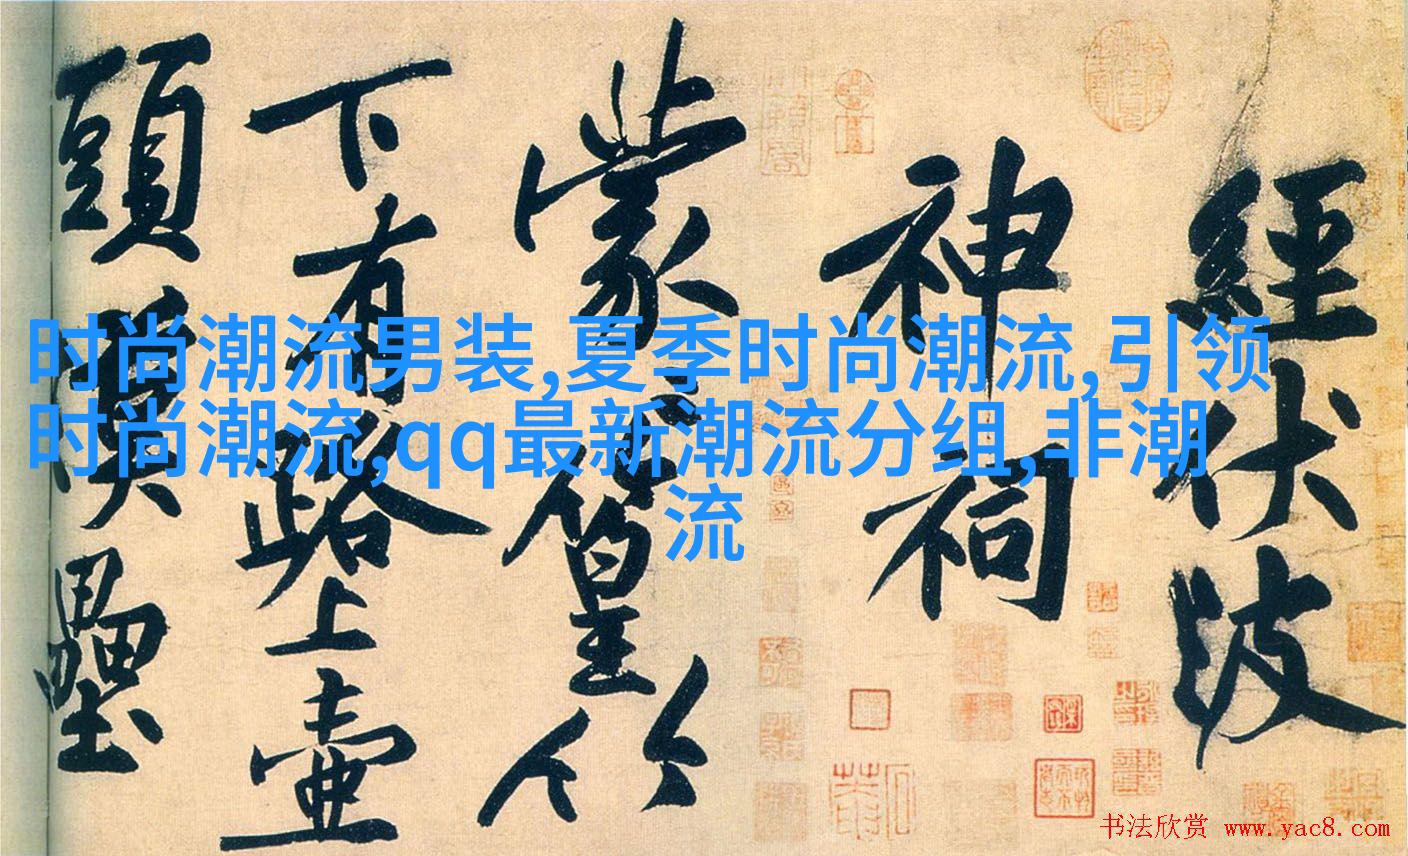 經伏波
神祠
蒙〻篁竹
下有路上壺
頭漢壘
时尚潮流男装,夏季时尚潮流,引领
时尚潮流,qq最新潮流分组,非潮
流
书法欣赏 www.yac8.com